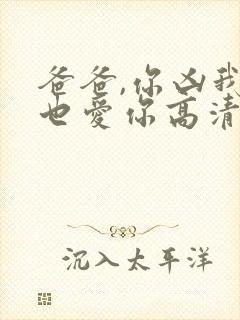 爸爸,你凶我
也爱你高清
沉入太平洋